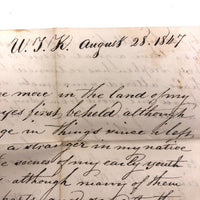 W. T. K. August 28. 1847
e more in the land of my
yes first beheld although
ge in things since I left
a stranger in my native
e scenes of my early youth
although many of them